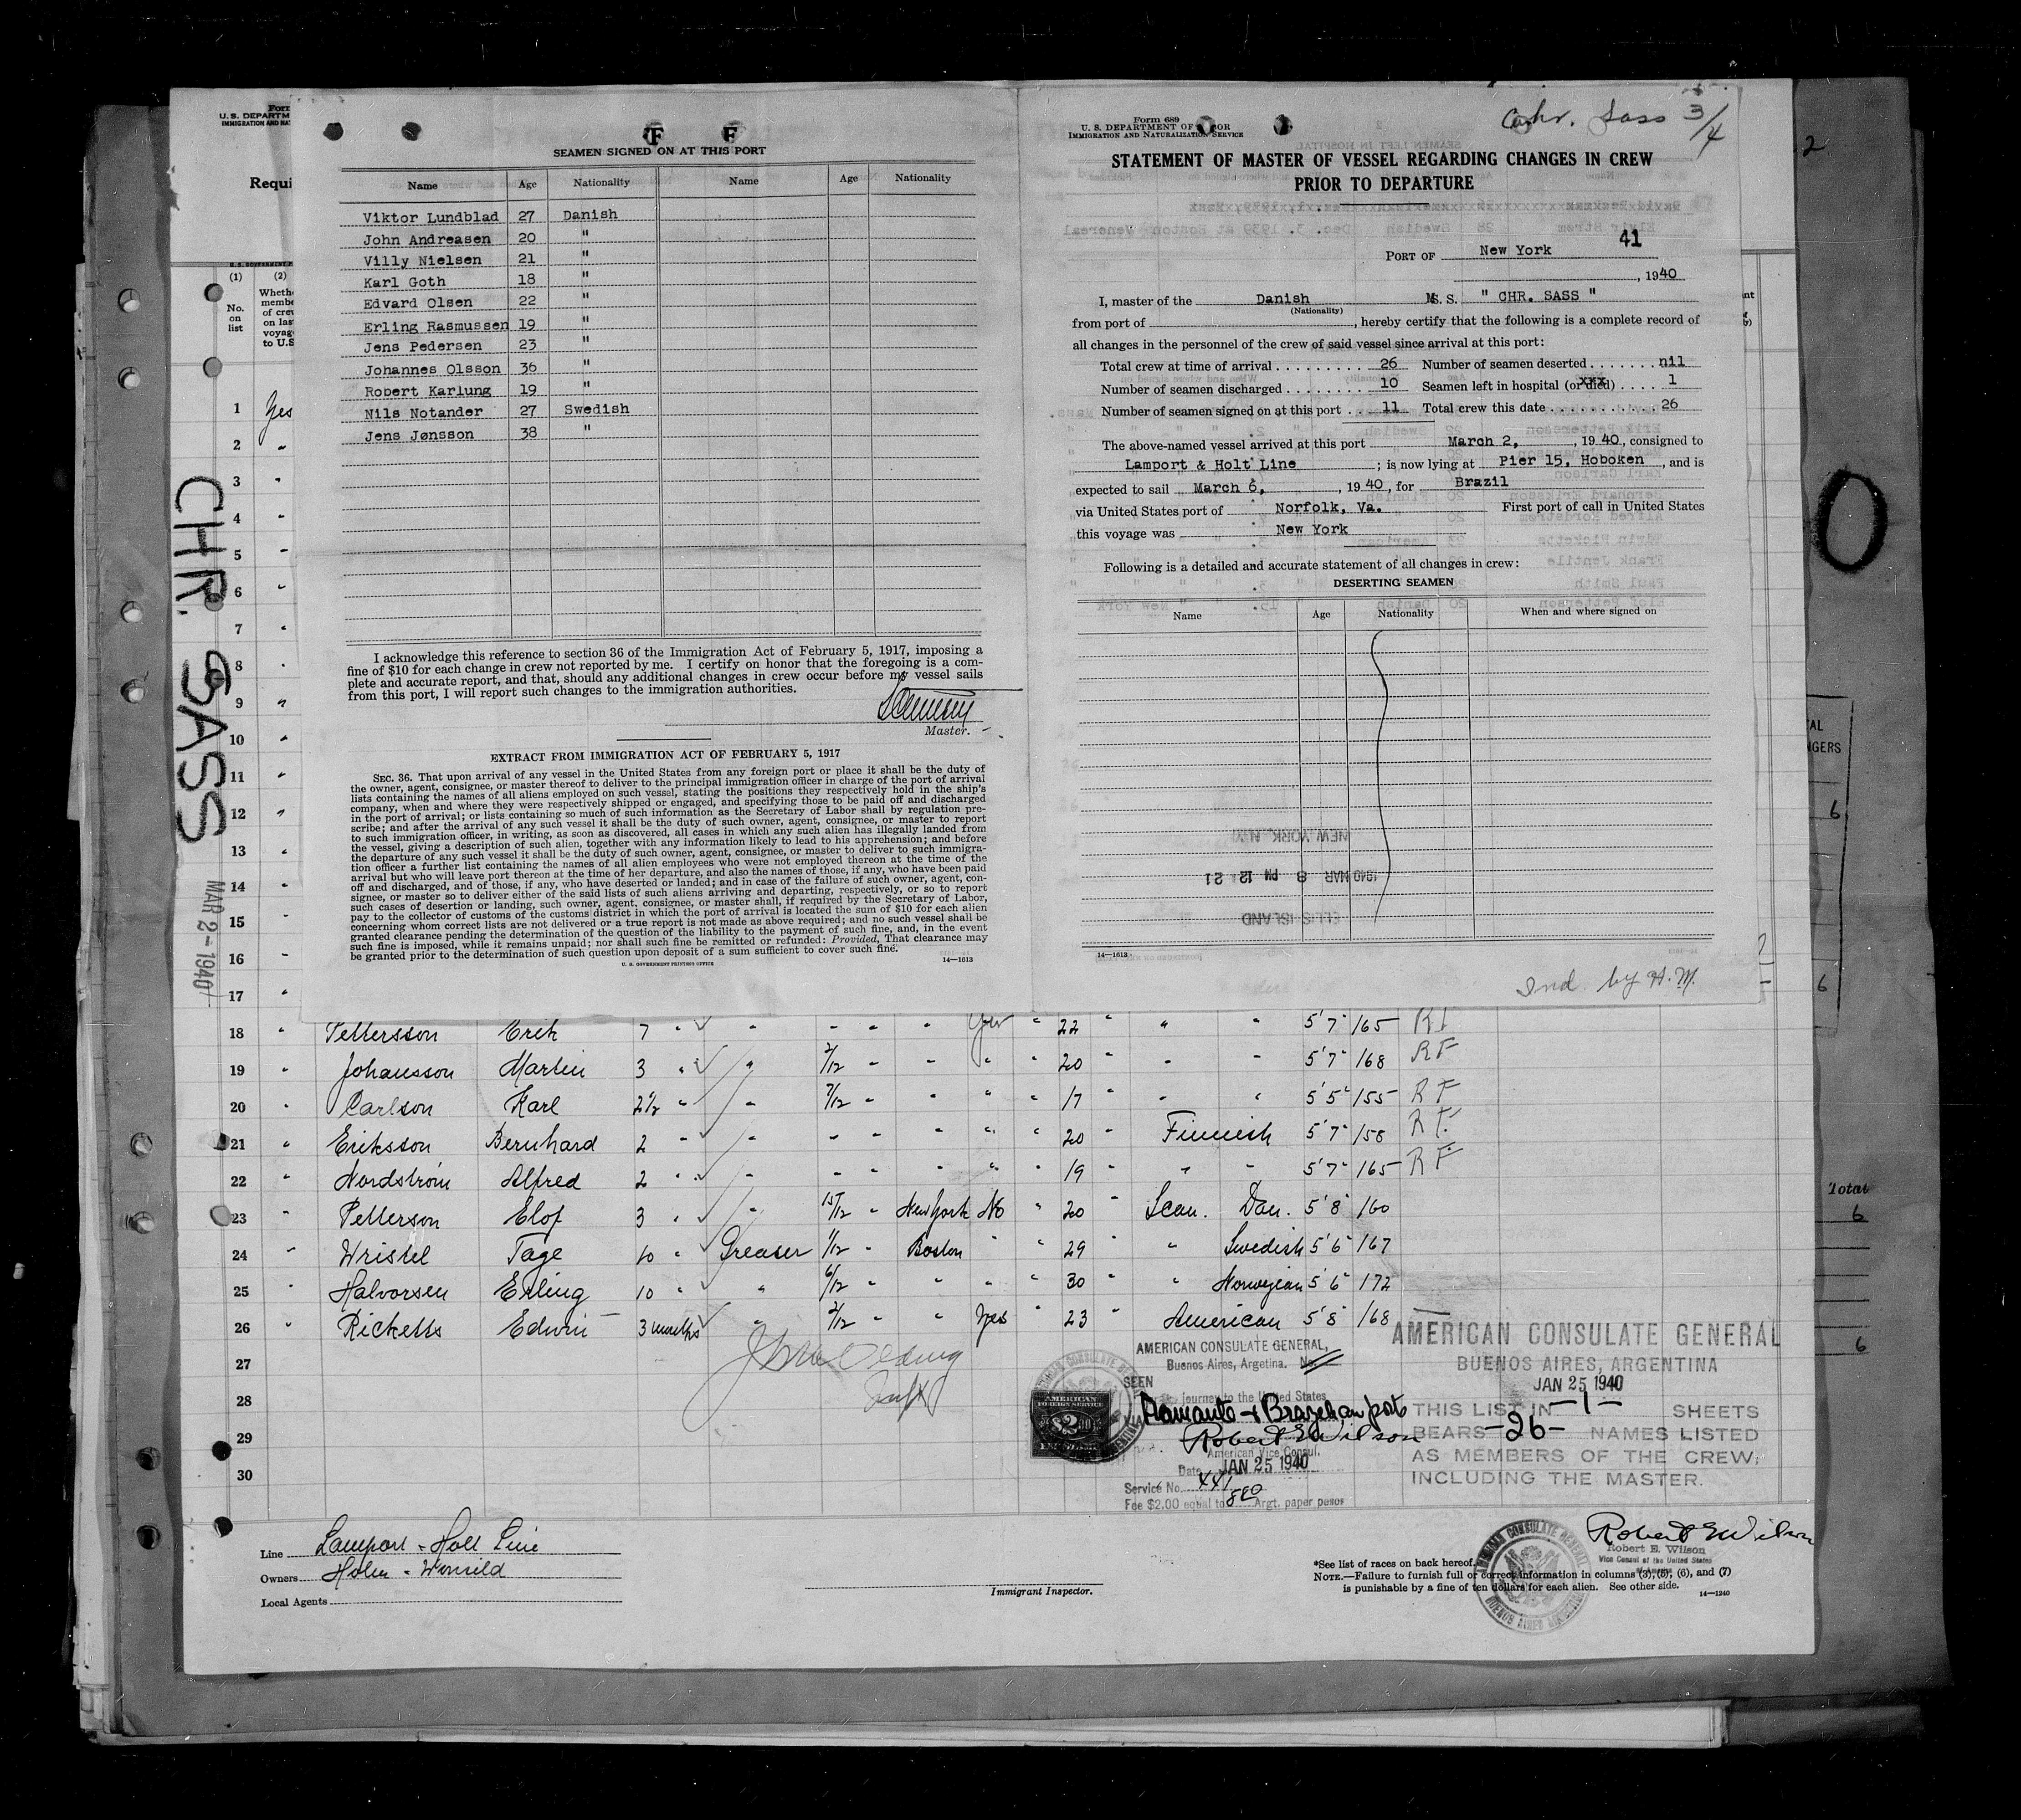 F F
SEAMEN SIGNED ON AT THIS PORT
Name Age Nationality Name Age Nationality
Viktor Lundblad 27 Danish
John Andreasen 20 "
Villy Nielsen 21 "
Karl Goth 18 "
Edvard Olsen 22 "
Erling Rasmussen 19 "
Jens Pedersen 23 "
Johannes Olsson 36 "
Robert Karlung 19 "
Nils Notander 27 Swedish
Jens Jønsson 38 "
I acknowledge this reference to section 36 of the Immigration Act of February 5, 1917, imposing a
fine of $10 for each change in crew not reported by me. I certify on honor that the foregoing is a com-
plete and accurate report, and that, should any additional changes in crew occur before my vessel sails
from this port, I will report such changes to the immigration authorities.
Master.
EXTRACT FROM IMMIGRATION ACT OF FEBRUARY 5, 1917
SEC. 36. That upon arrival of any vessel in the United States from any foreign port or place it shall be the duty of
the owner, agent, consignee, or master thereof to deliver to the principal immigration officer in charge of the port of arrival
lists containing the names of all aliens employed on such vessel, stating the positions they respectively hold in the ship's
company, when and where they were respectively shipped or engaged, and specifying those to be paid off and discharged
in the port of arrival; or lists containing so much of such information as the Secretary of Labor shall by regulation pre-
scribe; and after the arrival of any such vessel it shall be the duty of such owner, agent, consignee, or master to report
to such immigration officer, in writing, as soon as discovered, all cases in which any such alien has illegally landed from
the vessel, giving a description of such alien, together with any information likely to lead to his apprehension; and before
the departure of any such vessel it shall be the duty of such owner, agent, consignee, or master to deliver to such immigra-
tion officer a further list containing the names of all alien employees who were not employed thereon at the time of the
arrival but who will leave port thereon at the time of her departure, and also the names of those, if any, who have been paid
off and discharged, and of those, if any, who have deserted or landed; and in case of the failure of such owner, agent, con-
signee, or master so to deliver either of the said lists of such aliens arriving and departing, respectively, or so to report
such cases of desertion or landing, such owner, agent, consignee, or master shall, if required by the Secretary of Labor,
pay to the collector of customs of the customs district in which the port of arrival is located the sum of $10 for each alien
concerning whom correct lists are not delivered or a true report is not made as above required; and no such vessel shall be
granted clearance pending the determination of the question of the liability to the payment of such fine, and, in the event
such fine is imposed, while it remains unpaid; nor shall such fine be remitted or refunded: Provided, That clearance may
be granted prior to the determination of such question upon deposit of a sum sufficient to cover such fine.
U. S. GOVERNMENT PRINTING OFFICE 14—1613
Chr. Sass 3/4
Form 689
U. S. DEPARTMENT OF LABOR
IMMIGRATION AND NATURALIZATION SERVICE
STATEMENT OF MASTER OF VESSEL REGARDING CHANGES IN CREW
PRIOR TO DEPARTURE
41
PORT OF New York
, 1940
I, master of the Danish M.S. S. " CHR. SASS "
(Nationality)
from port of , hereby certify that the following is a complete record of
all changes in the personnel of the crew of said vessel since arrival at this port:
Total crew at time of arrival 26 Number of seamen deserted nil
Number of seamen discharged 10 Seamen left in hospital (or died) 1
Number of seamen signed on at this port 11 Total crew this date 26
The above-named vessel arrived at this port March 2, , 1940, consigned to
Lamport & Holt Line ; is now lying at Pier 15, Hoboken , and is
expected to sail March 6, , 1940, for Brazil
via United States port of Norfolk, Va. First port of call in United States
this voyage was New York
Following is a detailed and accurate statement of all changes in crew:
DESERTING SEAMEN
Name Age Nationality When and where signed on
NEW YORK N.Y.
1940 MAR 8 PM 12 21
ELLIS ISLAND
14—1613
Ind. by H. M.
Form
U. S. DEPARTM
IMMIGRATION AND NAT
Requi
(1) (2)
No. on list
Wheth
membe
of crew
on las
voyag
to U.S
1 Yes
2 "
3 "
4 "
5 "
6 "
7 "
8 "
9 "
10 "
11 "
12 "
13 "
14 "
15 "
16 "
17 "
CHR. SASS
MAR 2-1940
18 " Pettersson Erik 7 " " " " " Yes " 22 " " " 5'7" 165 RF
19 " Johansson Martin 3 " " 2/12 " " " " 20 " " " 5'7" 168 RF
20 " Carlson Karl 2½ " " 7/12 " " " " 17 " " " 5'5" 155 RF
21 " Eriksson Bernhard 2 " " " " " " " 20 " Finnish 5'7" 158 RF
22 " Nordström Alfred 2 " " " " " " " 19 " " " 5'7" 165 RF
23 " Petterson Elof 3 " " 15/12 " New York No " 20 " Scan. Dan. 5'8" 160
24 " Wristel Tage 10 " Greaser 1/12 " Boston " " 29 " " Swedish 5'6" 167
25 " Halvorsen Erling 10 " " 6/12 " " " " 30 " " Norwegian 5'6" 172
26 " Ricketts Edwin 3 months " 2/12 " " Yes " 23 " American 5'8" 168
27
28
29
30
AMERICAN CONSULATE GENERAL,
Buenos Aires, Argetina. No.
SEEN
journey to the United States
Brazilian ports
Robert E Wilson
American Vice Consul.
Date JAN 25 1940
Service No. 441
Fee $2.00 equal to 8.80 Argt. paper pesos
AMERICAN CONSULATE GENERAL
BUENOS AIRES, ARGENTINA
JAN 25 1940
THIS LIST IN -1- SHEETS
BEARS -26- NAMES LISTED
AS MEMBERS OF THE CREW,
INCLUDING THE MASTER.
Line Lamport - Holt Line
Owners Holm - Wonsild
Local Agents
Immigrant Inspector.
Robert E Wilson
Robert E. Wilson
Vice Consul of the United States
*See list of races on back hereof.
NOTE.—Failure to furnish full or correct information in columns (3), (5), (6), and (7)
is punishable by a fine of ten dollars for each alien. See other side. 14—1240
2
TAL
NGERS
6
6
Total
6
6